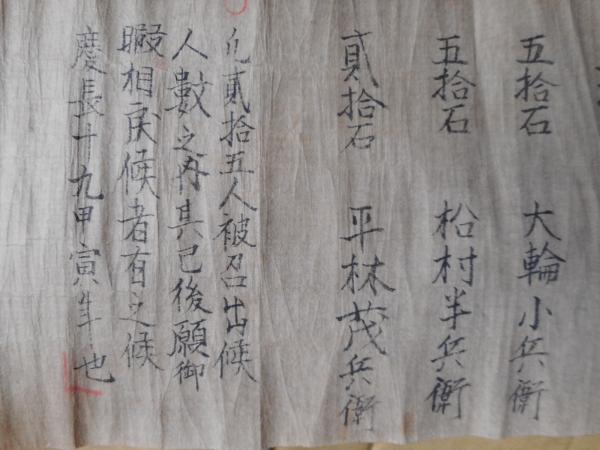 五拾石 大輪小兵衛
五拾石 松村半兵衛
貳拾石 平林茂兵衛
凢貳拾五人被召出候
人數之内其已後願御
暇相戻候者有之候
慶長十九甲寅年也